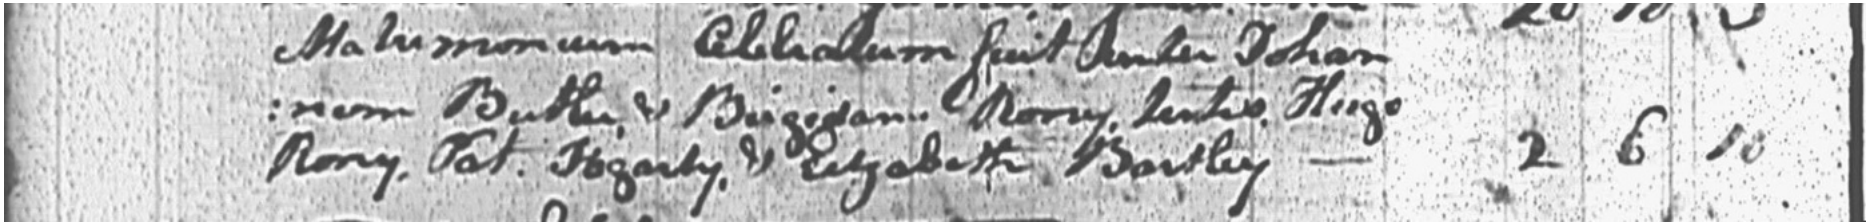 Matrimonium Celebratum fuit Inter Johan
:nem Butler, & Brigidam Rony, testes, Hugo
Rony, Pat. Fogarty, & Elizabeth Bartley — 2 6 10